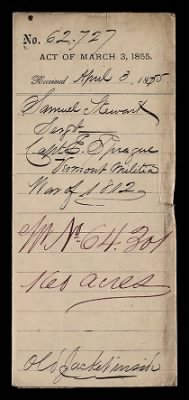 No. 62.727
ACT OF MARCH 3, 1855.
Received April 3, 1855
Samuel Stewart
Sergt
Capt E. Sprague
Vermont Militia
War of 1812
W No 64.301
160 acres
Old Jacket inside